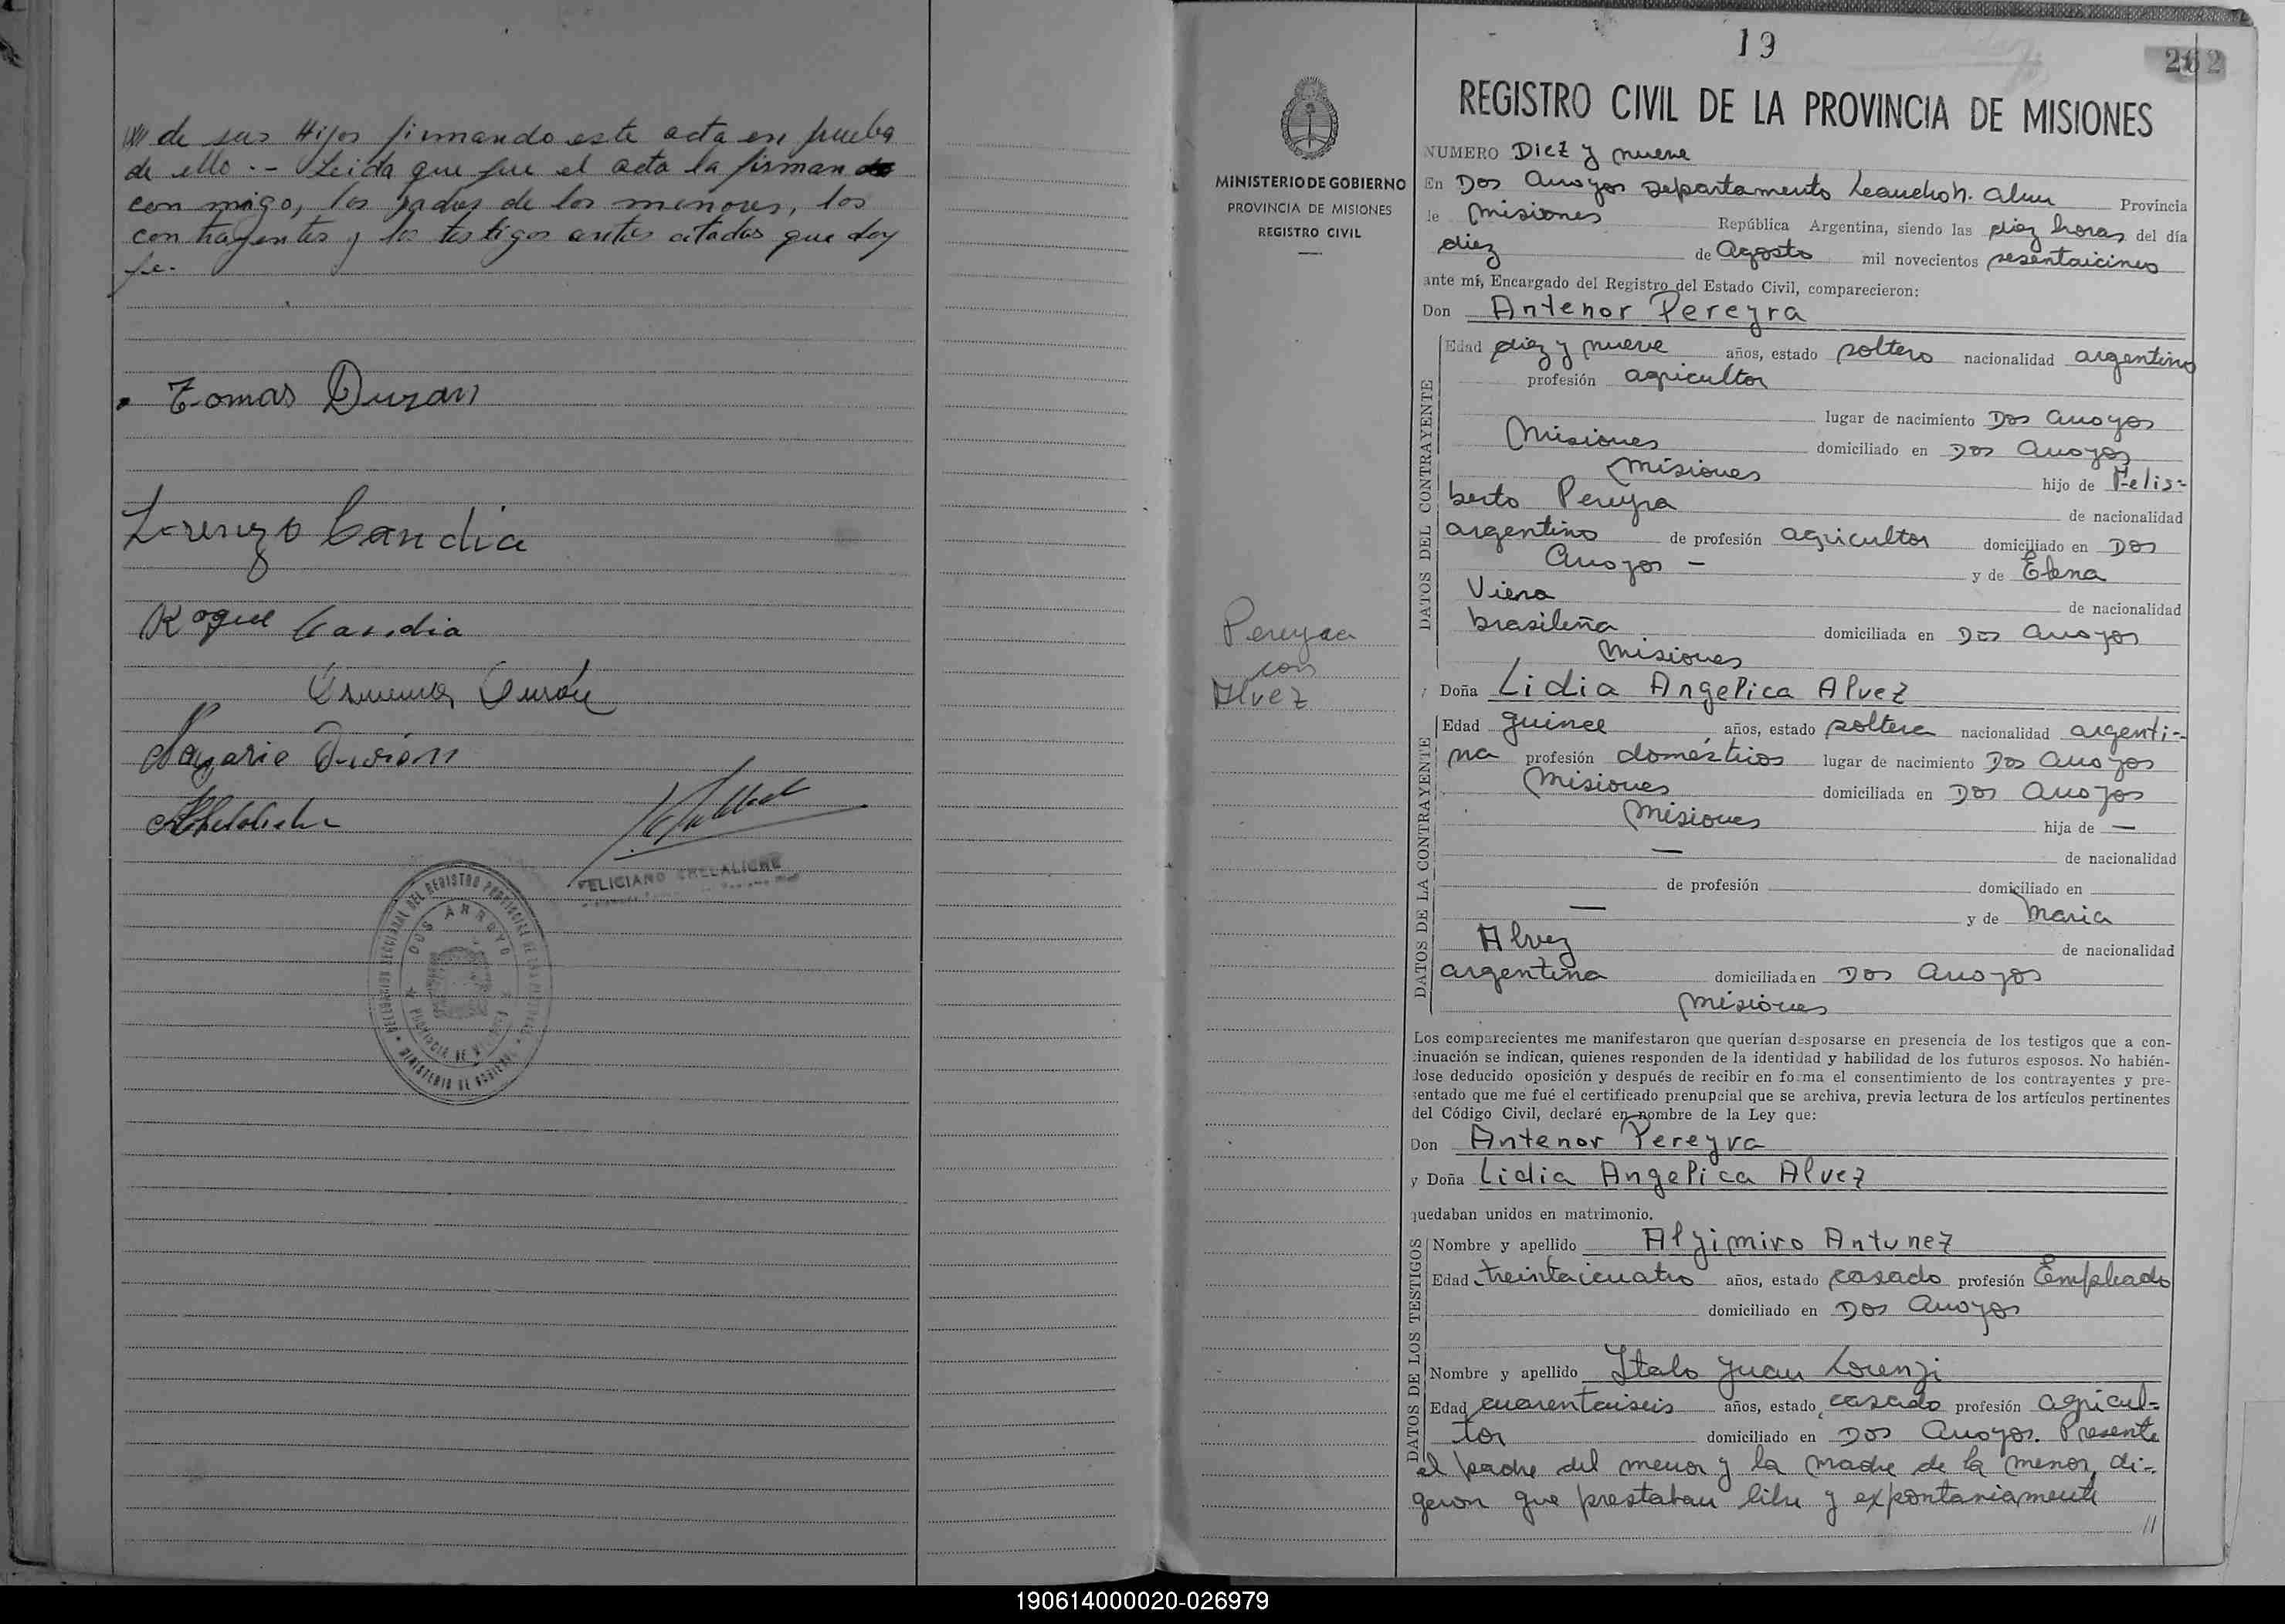 //// de sus Hijos firmando este acta en prueba
de ello.- Leida que fue el acta la firman
con migo, los padres de los menores, los
contrayentes y los testigos antes citados que doy
fe.-
Tomas Duran
Lorenzo Candia
Roque Candia
Durán
Nazario Durión
FELICIANO CHELALICHE
DELEGACION SECCIONAL DEL REGISTRO PROVINCIAL DE LAS PERSONAS
DOS ARROYO
PROVINCIA DE MISIONES
MINISTERIO DE GOBIERNO
19
262
MINISTERIO DE GOBIERNO
PROVINCIA DE MISIONES
REGISTRO CIVIL
Pereyra
con
Alvez
REGISTRO CIVIL DE LA PROVINCIA DE MISIONES
NUMERO Diez y nueve
En Dos Arroyos Departamento Leandro N. Alem Provincia
de Misiones República Argentina, siendo las diez horas del día
diez de Agosto mil novecientos sesentaicinco
ante mí, Encargado del Registro del Estado Civil, comparecieron:
Don Antenor Pereyra
DATOS DEL CONTRAYENTE
Edad diez y nueve años, estado soltero nacionalidad argentino
profesión agricultor
lugar de nacimiento Dos Arroyos
Misiones domiciliado en Dos Arroyos
Misiones hijo de Felis-
berto Pereyra de nacionalidad
argentino de profesión agricultor domiciliado en Dos
Arroyos - y de Elena
Viera de nacionalidad
brasileña domiciliada en Dos Arroyos
Misiones
y Doña Lidia Angelica Alvez
DATOS DE LA CONTRAYENTE
Edad quince años, estado soltera nacionalidad argenti-
na profesión domésticos lugar de nacimiento Dos Arroyos
Misiones domiciliada en Dos Arroyos
Misiones hija de —
— de nacionalidad
de profesión domiciliado en
— y de Maria
Alvez de nacionalidad
argentina domiciliada en Dos Arroyos
Misiones
Los comparecientes me manifestaron que querían desposarse en presencia de los testigos que a con-
tinuación se indican, quienes responden de la identidad y habilidad de los futuros esposos. No habién-
dose deducido oposición y después de recibir en forma el consentimiento de los contrayentes y pre-
sentado que me fué el certificado prenupcial que se archiva, previa lectura de los artículos pertinentes
del Código Civil, declaré en nombre de la Ley que:
Don Antenor Pereyra
y Doña Lidia Angelica Alvez
quedaban unidos en matrimonio.
DATOS DE LOS TESTIGOS
Nombre y apellido Algimiro Antunez
Edad treintaicuatro años, estado casado profesión Empleado
domiciliado en Dos Arroyos
Nombre y apellido Italo Juan Lorenzi
Edad cuarentaiseis años, estado casado profesión agricul-
tor domiciliado en Dos Arroyos. Presente
el padre del menor y la madre de la menor, di-
geron que prestaban libre y expontaniamente
//
190614000020-026979